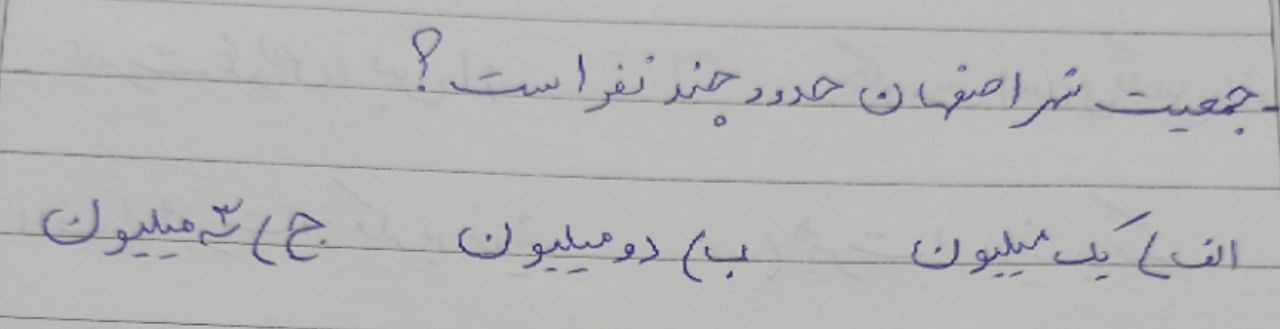 جمعیت شهر اصفهان حدود چند نفر است؟
الف) یک میلیون ب) دو میلیون ج) سه میلیون